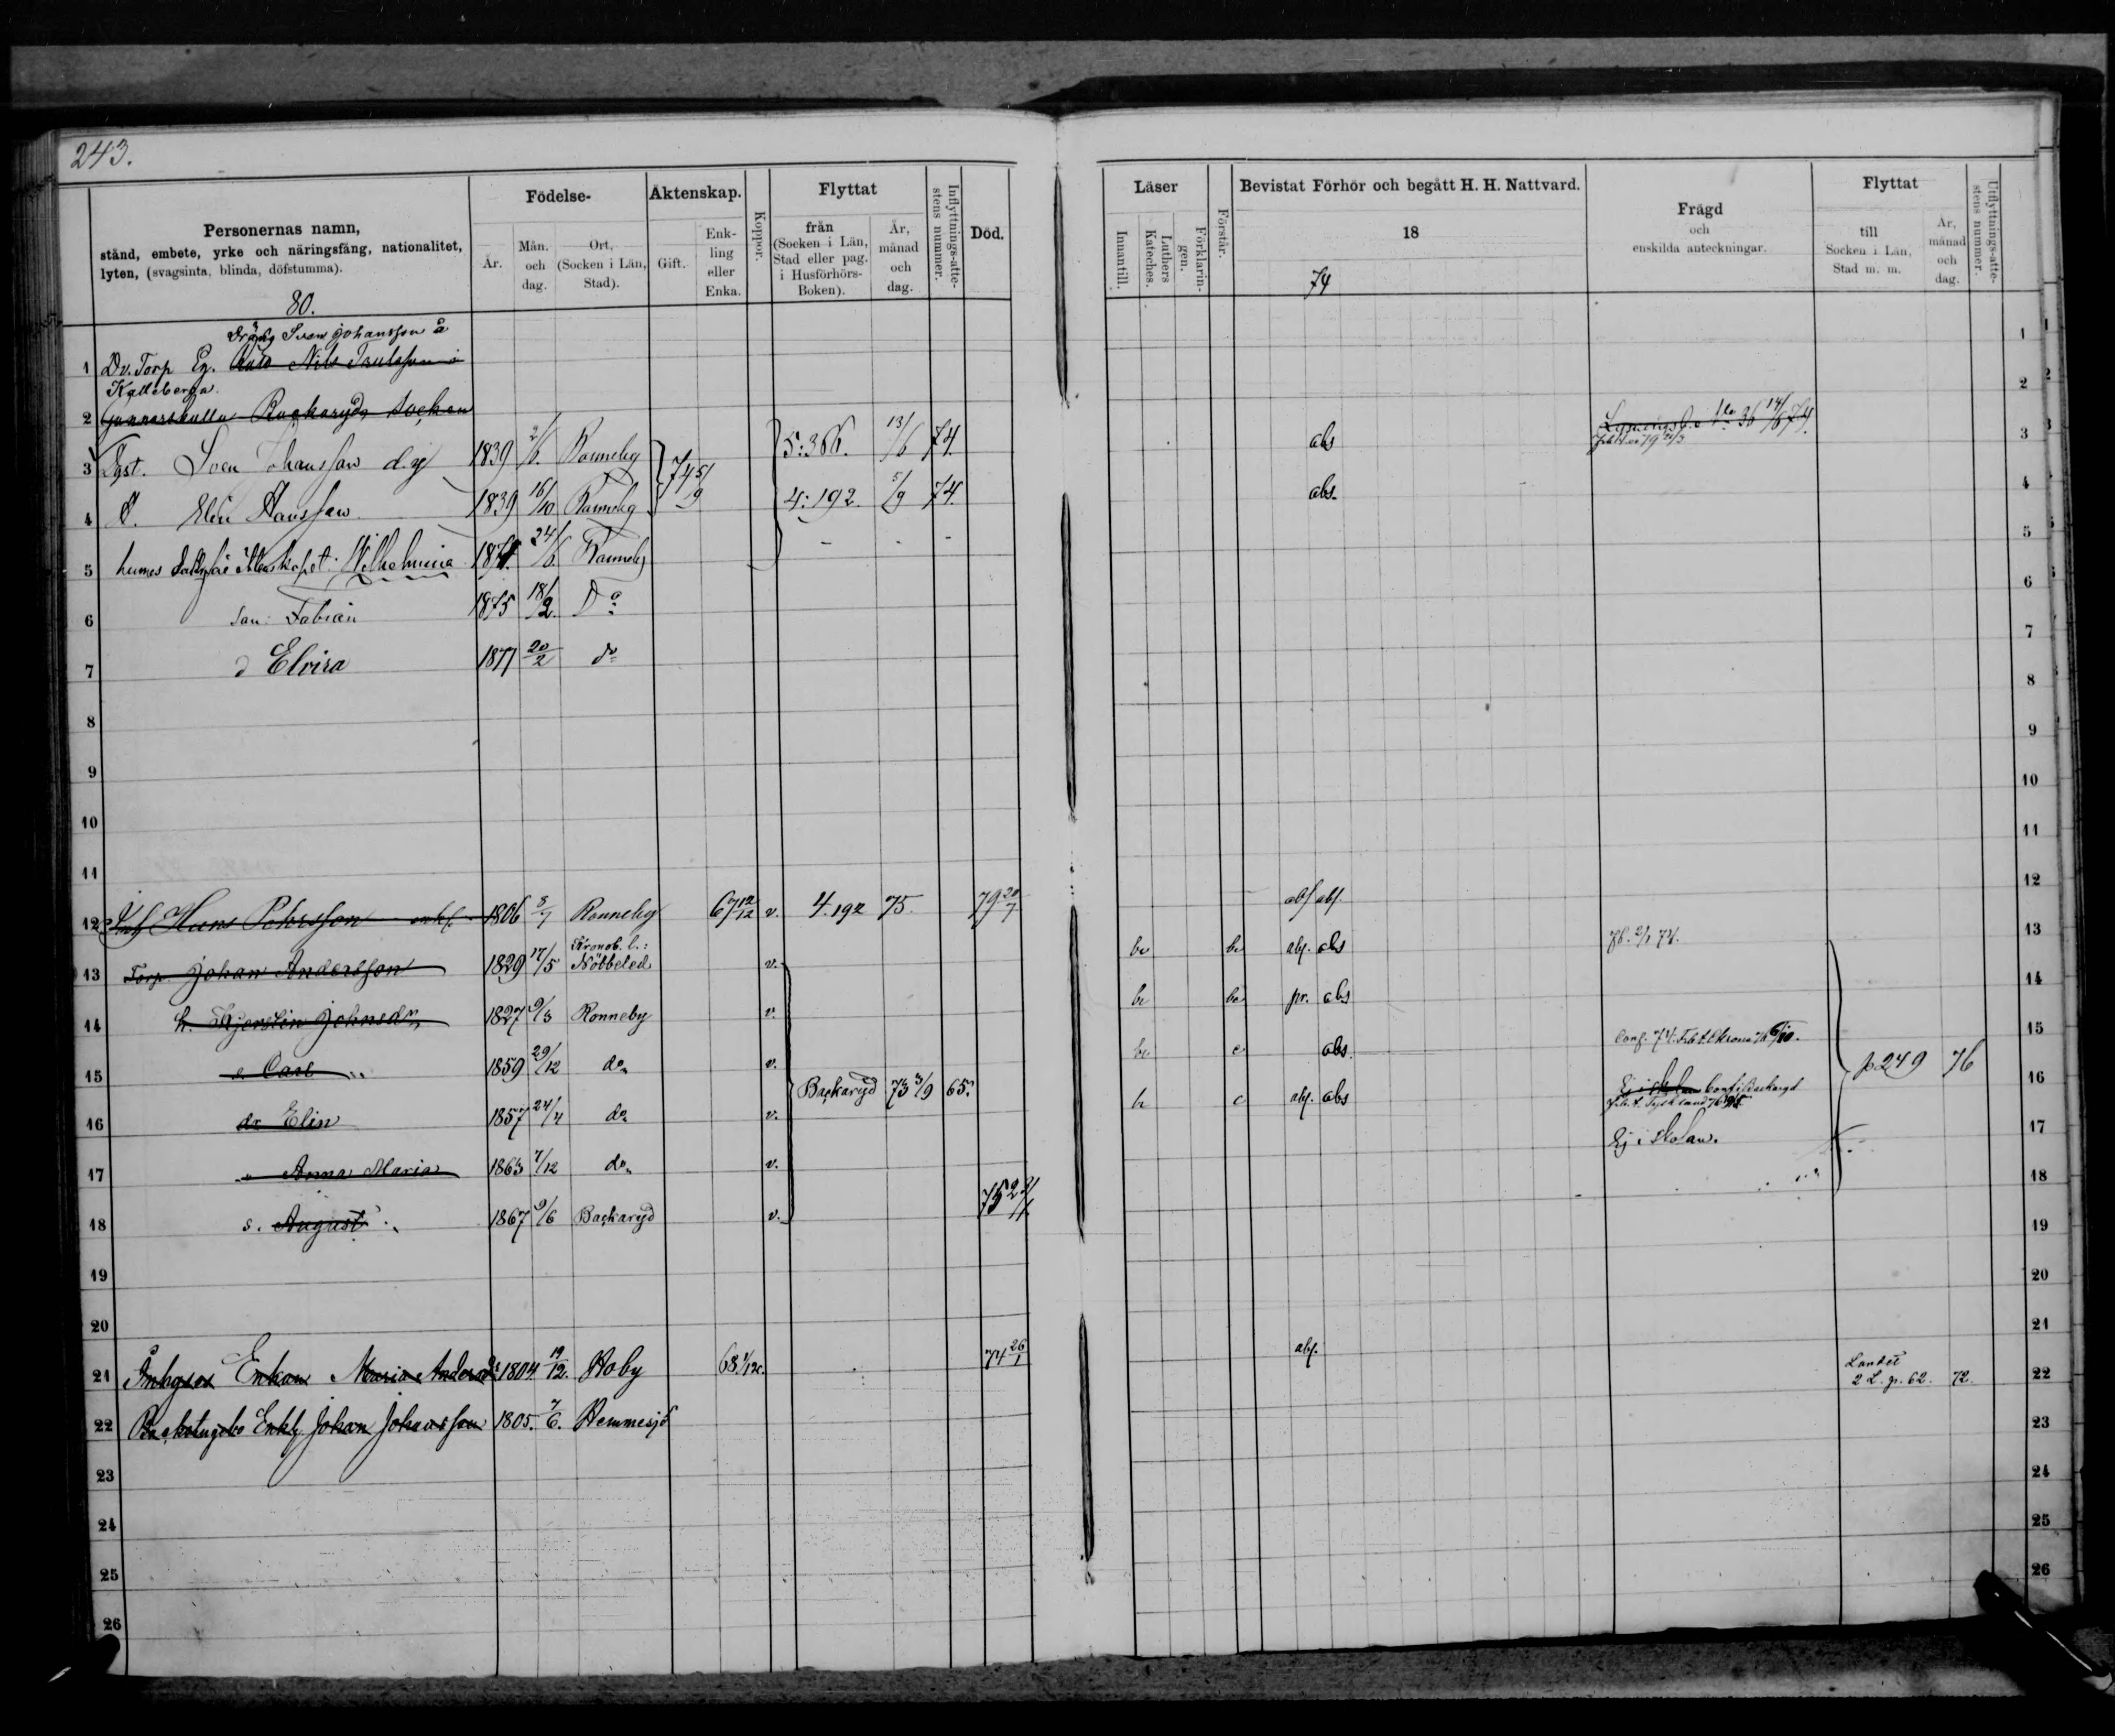 243.
Personernas namn,
stånd, embete, yrke och näringsfång, nationalitet,
lyten, (svagsinta, blinda, döfstumma).
80.
Födelse-
År.
Mån. och dag.
Ort, (Socken i Län, Stad).
Äktenskap.
Gift.
Enk- ling eller Enka.
Koppor.
Flyttat
från (Socken i Län, Stad eller pag. i Husförhörs- Boken).
År, månad och dag.
Inflyttnings-atte- stens nummer.
Död.
Läser
Innantill.
Luthers Kateches.
Förklarin- gen.
Förstår.
Bevistat Förhör och begått H. H. Nattvard.
18
74
Frägd
och
enskilda anteckningar.
Flyttat
till Socken i Län, Stad m. m.
År, månad och dag.
Utflyttnings-atte- stens nummer.
Dräng Sven Johansson å
1 Dv. Torp Eg. Nils
Kalleberga
2 Backaryds Socken
3 Sven Johansson d.y. 1839 2/6 Ronneby 74 5/9 5: 366. 13/6 74. abs
4 Elin Hansson 1839 16/10 Ronneby 4: 192. 5/9 74. abs.
5 hennes Wilhelmina 1871. 24/6 Ronneby - - -
6 son: Fabian 1875 18/2 Do
7 d Elvira 1877 20/2 do
8
9
10
11
12 Hans Pehrsson enkl. 1806 3/7 Ronneby 67 12/12 v. 4.192 75. 79 20/7 abs abs.
13 Torp. Johan Andersson 1829 17/5 Kronob. l.: Nöbbeled v. be be abs. abs
14 h. Kjerstin Johnsdr 1827 9/3 Ronneby v. be be pr. abs
15 s. Carl 1859 29/12 do v. be c abs.
16 dr Elin 1857 24/4 do v. Backaryd 73 3/9 65. c abs. abs
17 " Anna Maria 1863 7/12 do v. Ej i skolan.
18 s. August 1867 9/6 Backaryd v. 75
p. 249 76
19
20
21 Inhyses Enkan Maria Andersdr 1804 19/12. Hoby 68 1/12. 74 26/1 abs.
22 Backstugubo Enkl. Johan Johansson 1805. 7/6. Hemmesjö Landet 2 L. p. 62. 72.
23
24
25
26